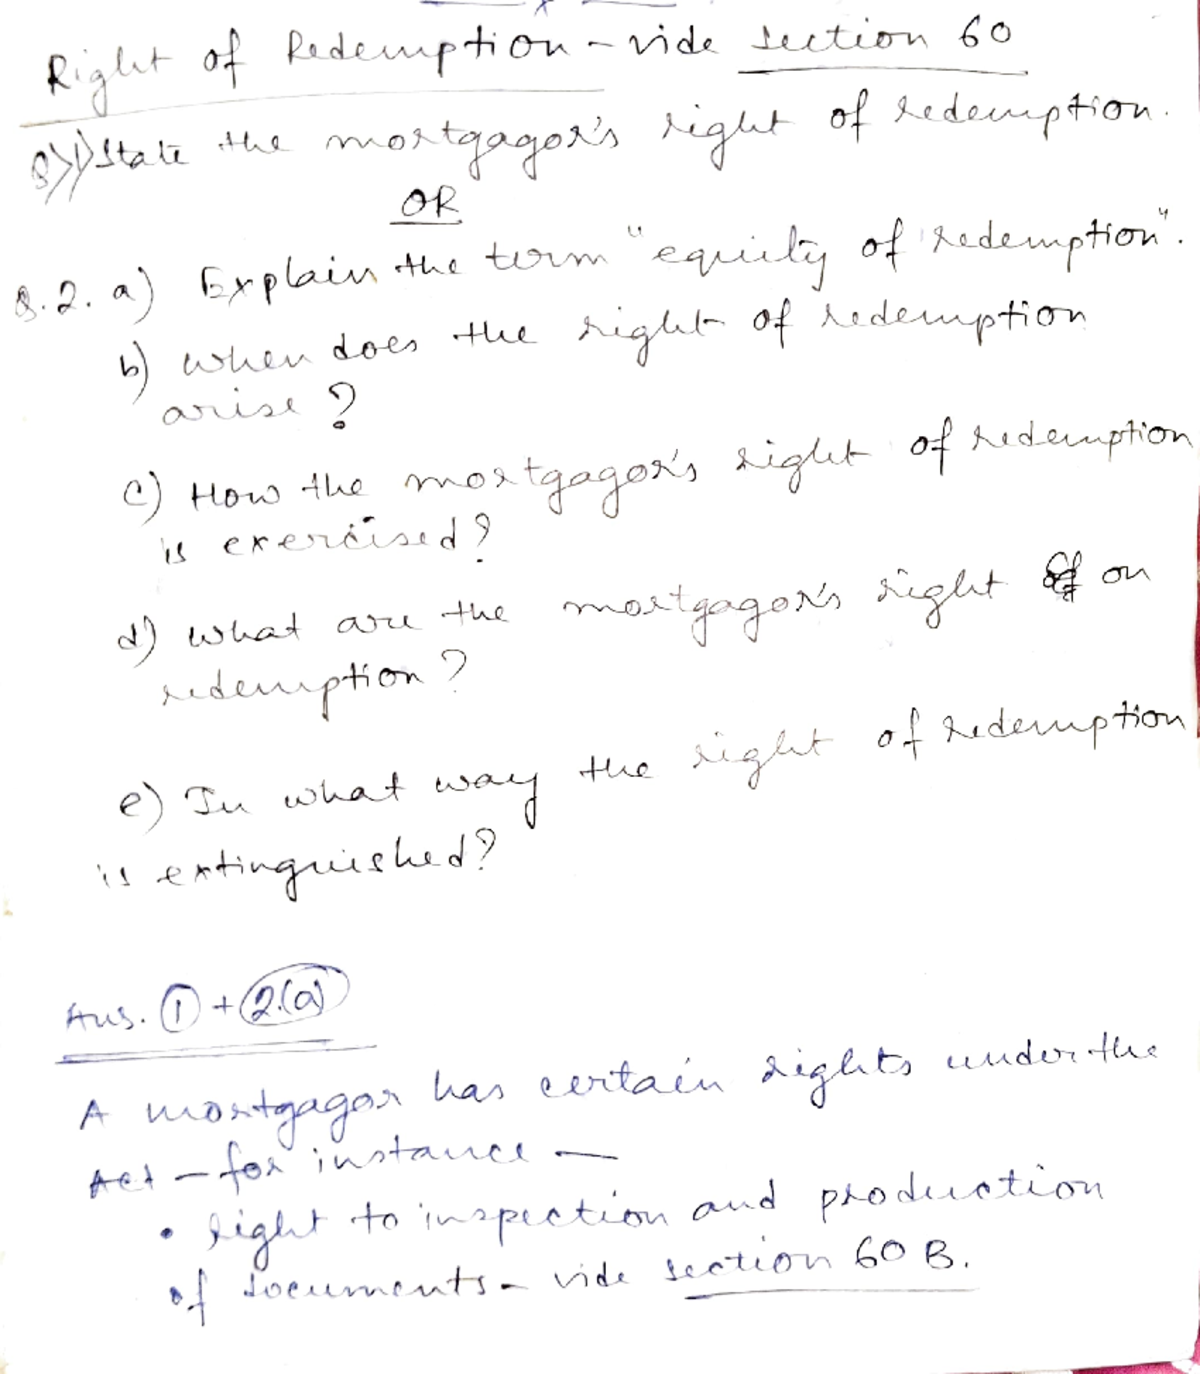 Right of Redemption - vide section 60
Q>1) State the mortgagor's right of redemption.
OR
Q.2. a) Explain the term "equity of redemption".
b) when does the right of redemption
arise?
c) How the mortgagor's right of redemption
is exercised?
d) what are the mortgagor's right on
redemption?
e) In what way the right of redemption
is extinguished?
Ans. ① + 2.(a)
A mortgagor has certain rights under the
Act - for instance -
• right to inspection and production
of documents - vide section 60 B.